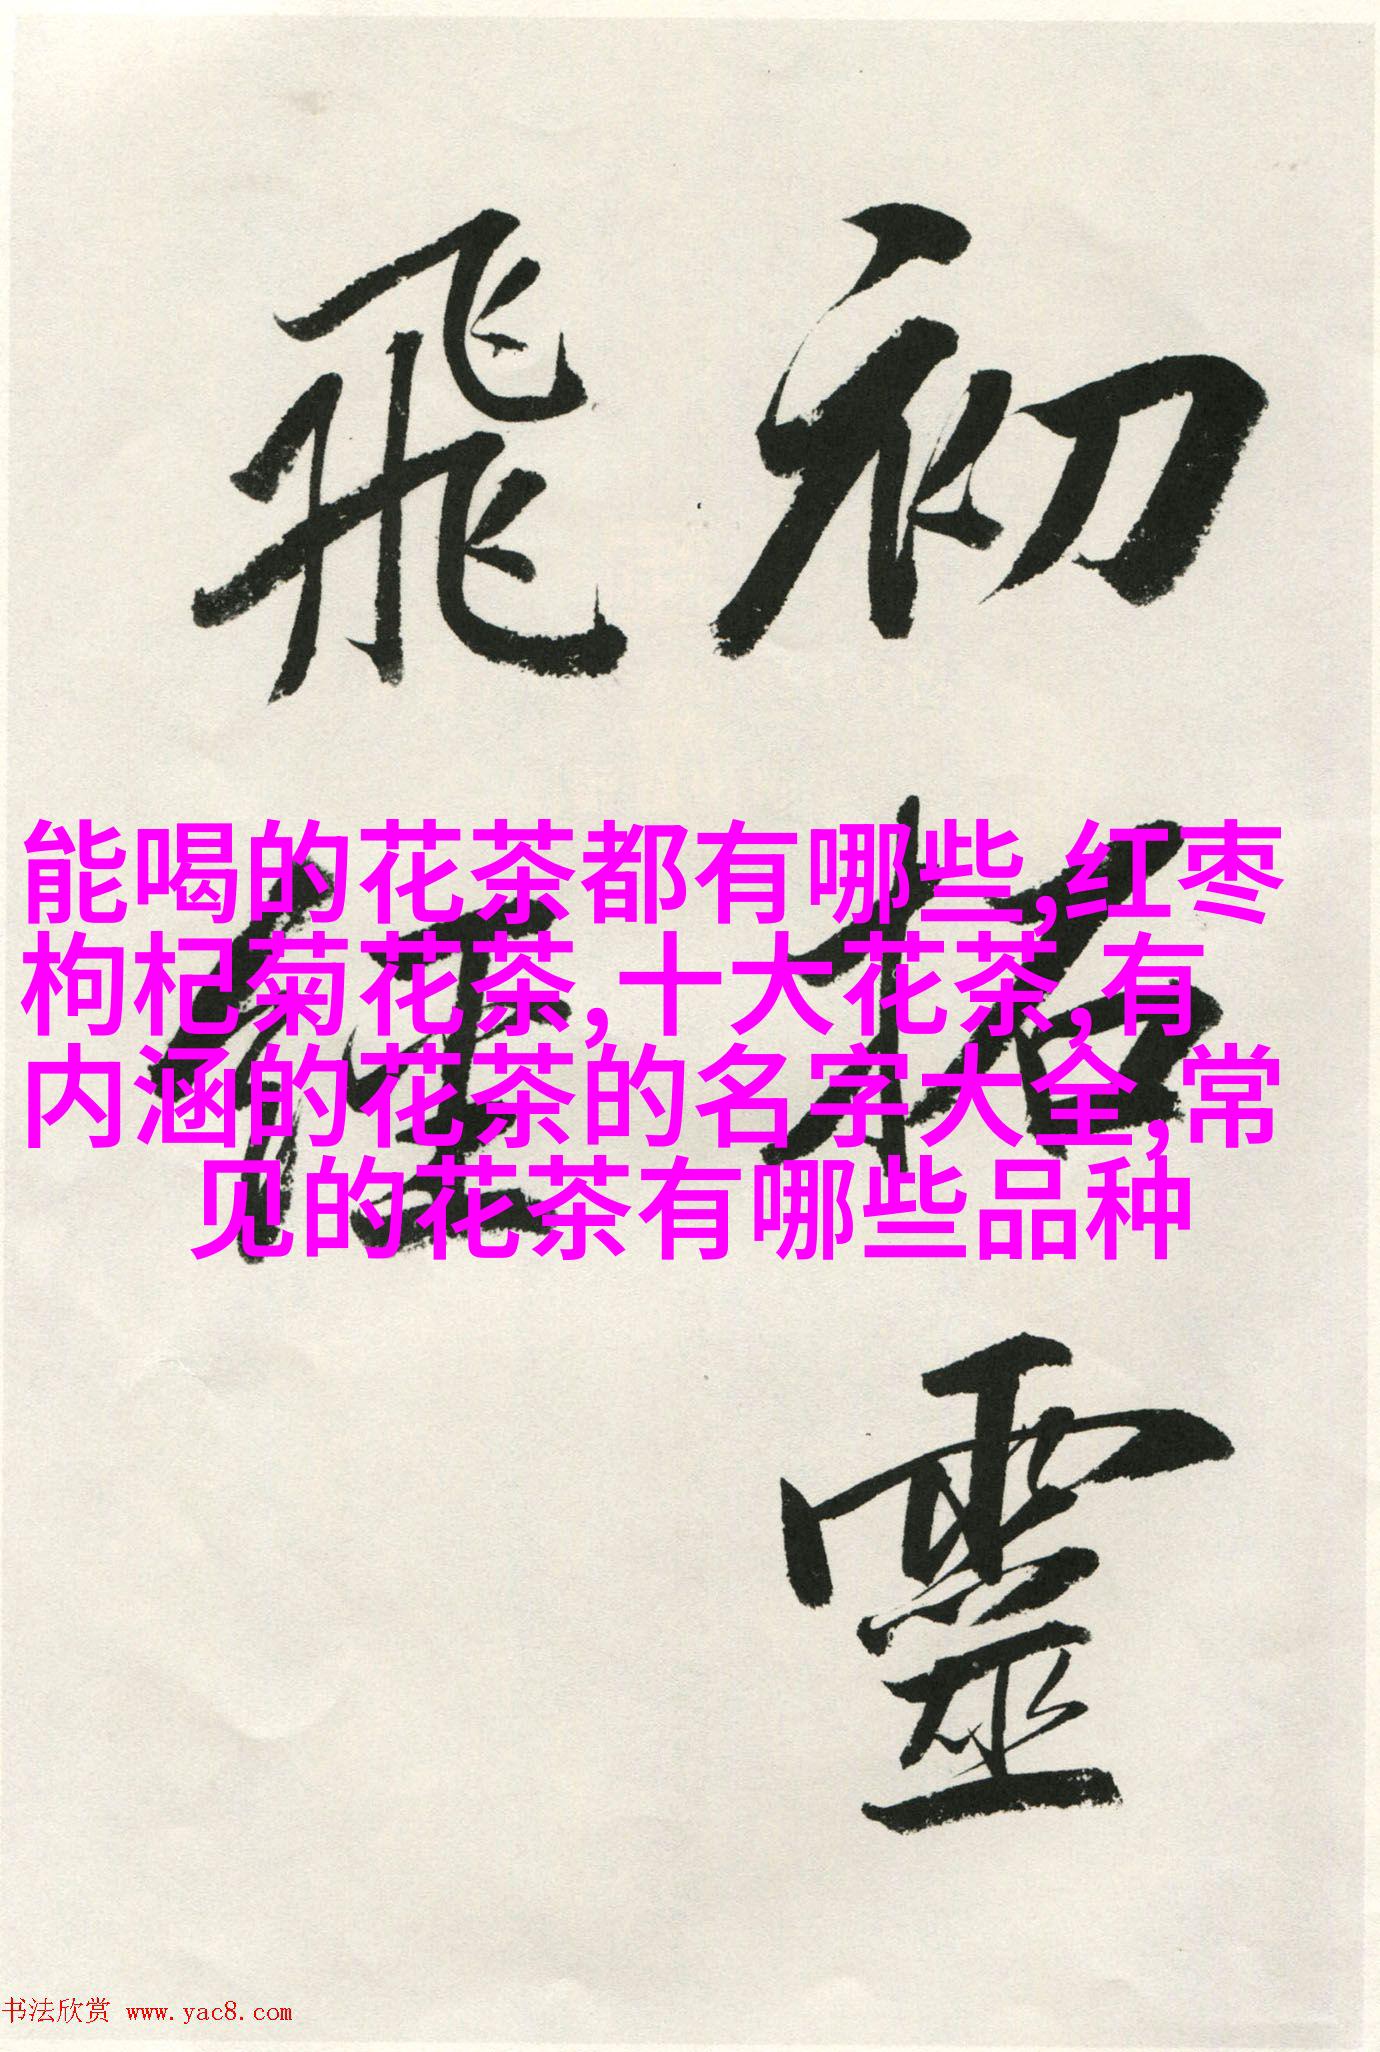 初拓靈
飛經
能喝的花茶都有哪些,红枣
枸杞菊花茶,十大花茶,有
内涵的花茶的名字大全,常
见的花茶有哪些品种
书法欣赏 www.yac8.com